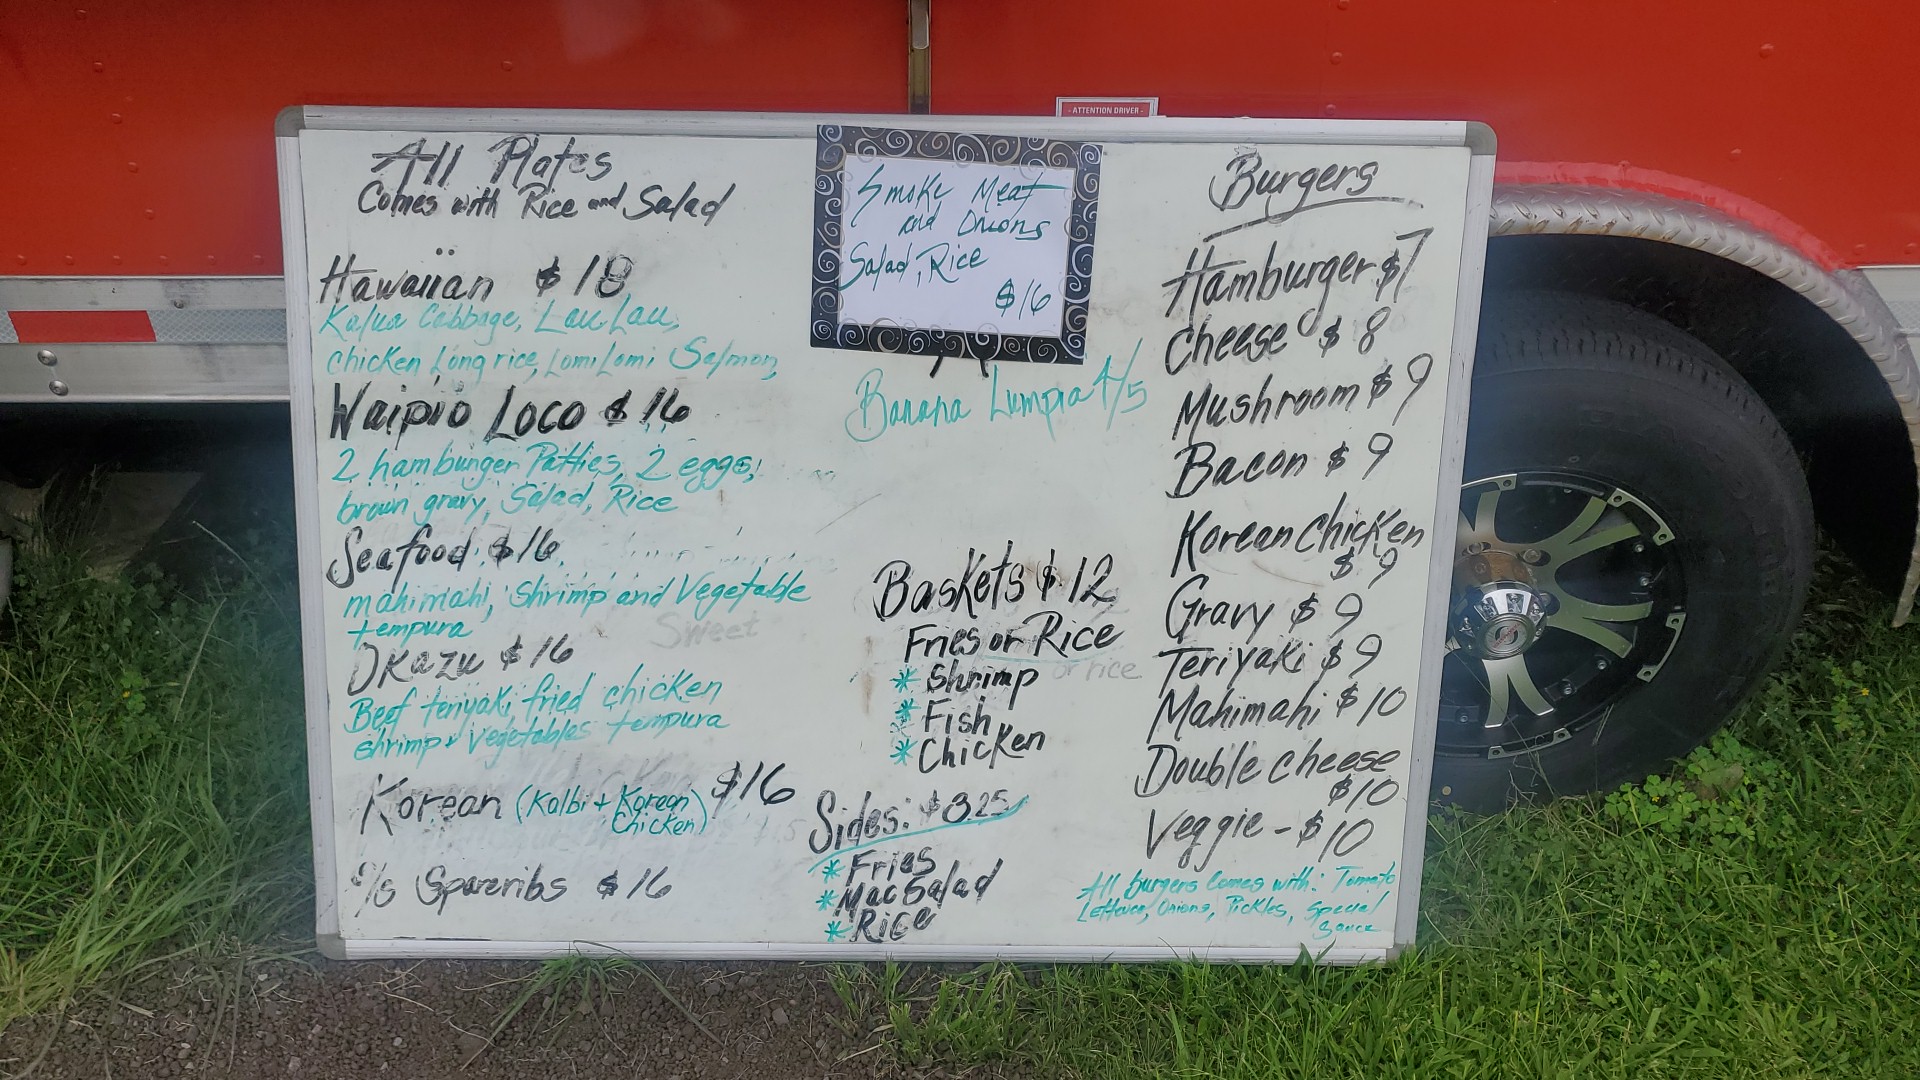 - ATTENTION DRIVER -
All Plates
Comes with Rice and Salad
Hawaiian $18
Kalua Cabbage, Lau Lau,
chicken Long rice, Lomi Lomi Salmon,
Waipio Loco $16
2 hamburger Patties, 2 eggs,
brown gravy, Salad, Rice
Seafood $16
mahimahi, Shrimp and Vegetable
tempura
Sweet
Okazu $16
Beef teriyaki fried chicken
shrimp + vegetables tempura
Korean (Kalbi + Korean $16
Chicken)
S/S Spareribs $16
Smoke Meat
and Onions
Salad, Rice
$16
Banana Lumpia 4/5
Baskets $12
Fries or Rice
* Shrimp or rice
* Fish
* Chicken
Sides: $3.25
* Fries
* Mac Salad
* Rice
Burgers
Hamburger $7
Cheese $8
Mushroom $9
Bacon $9
Korean Chicken
$9
Gravy $9
Teriyaki $9
Mahimahi $10
Double cheese
$10
Veggie - $10
All burgers Comes with: Tomato
Lettuce, Onions, Pickles, Special
Sauce